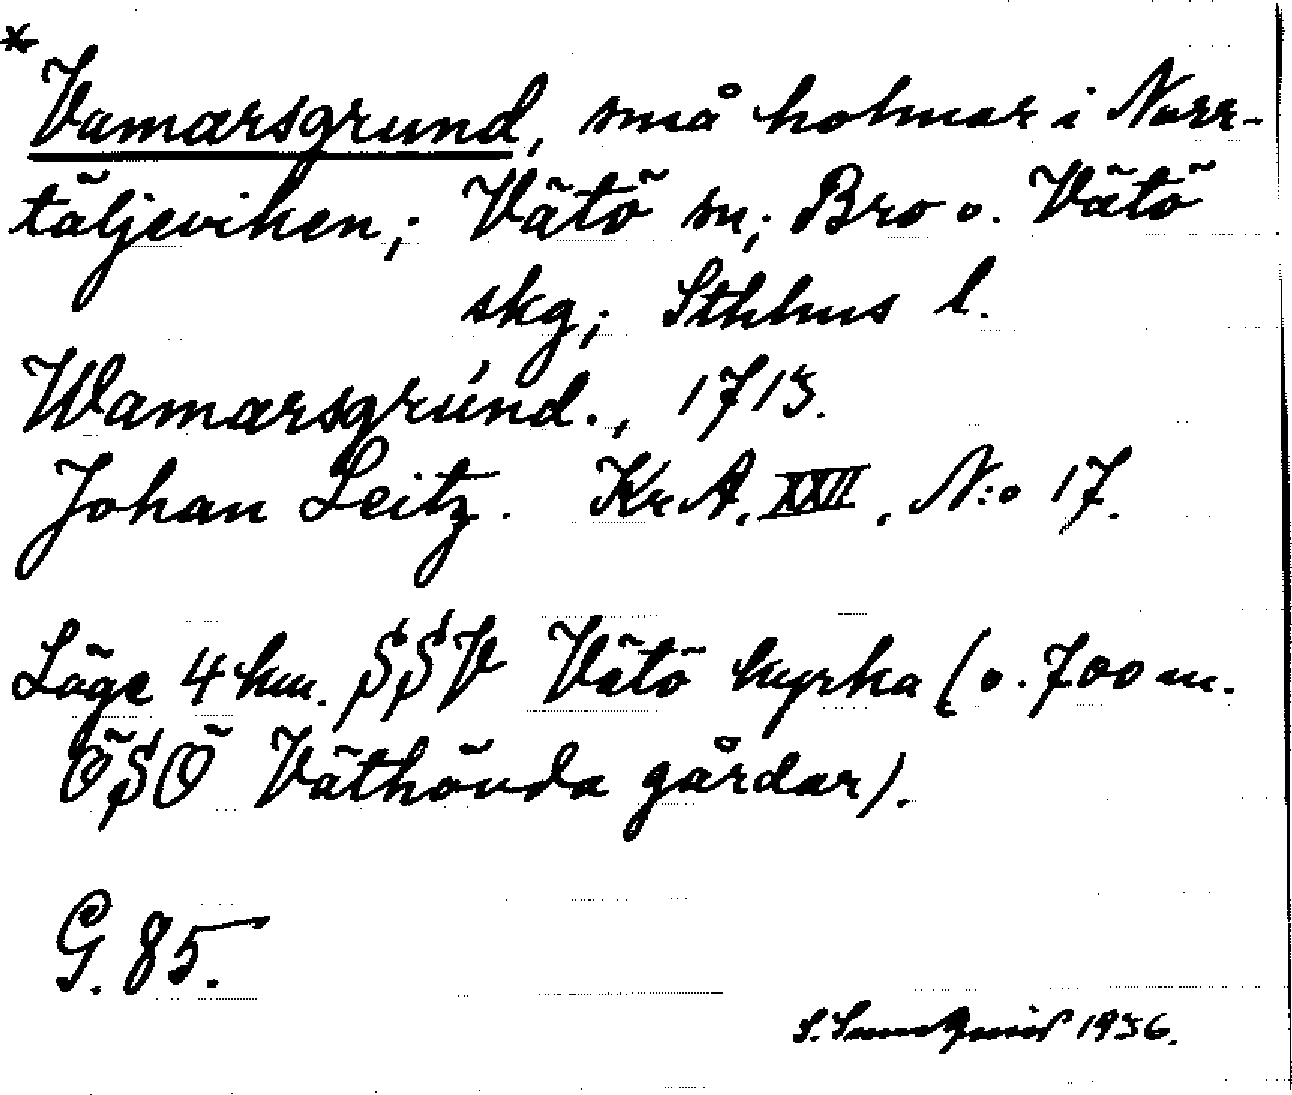 *
Vamarsgrund, små holmar i Norr-
täljeviken; Vätö sn; Bro o. Vätö
skg; Sthlms l.
Wamarsgrund., 1715.
Johan Leitz. Kr A. XXII, N:o 17.
Läge 4 km. SSV Vätö kyrka (o. 700 m.
ÖSÖ Väthövda gårdar).
G. 85.
S. 1936.